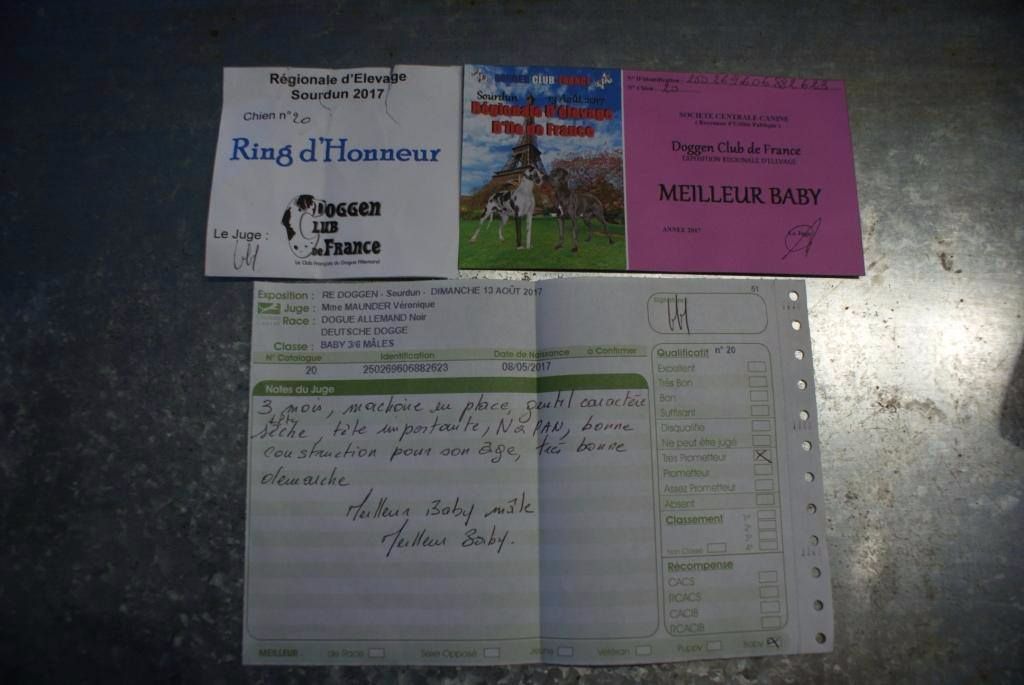 Régionale d'Elevage
Sourdun 2017
Chien n° 20
Ring d'Honneur
DOGGEN
CLUB
de FRANCE
Le Club Français du Dogue Allemand
Le Juge :
DOGGEN CLUB FRANCE
Sourdun 13 Août 2017
Régionale d'élevage
D'Ile de France
N° D'Identification : 250269606882623
N° Chien : 20
SOCIETE CENTRALE CANINE
( Reconnue d'Utilité Publique )
Doggen Club de France
EXPOSITION REGIONALE D'ELEVAGE
MEILLEUR BABY
ANNEE 2017
Le Juge
Exposition : RE DOGGEN - Sourdun - DIMANCHE 13 AOÛT 2017
51
Juge : Mme MAUNDER Véronique
Race : DOGUE ALLEMAND Noir
DEUTSCHE DOGGE
Classe : BABY 3/6 MÂLES
Signature
N° Catalogue Identification Date de Naissance à Confirmer
20 250269606882623 08/05/2017
Notes du Juge
3 mois, machoire en place, gentil caractère
sèche, tête importante, N&PAN, bonne
construction pour son âge, très bonne
démarche
Meilleur Baby mâle
Meilleur Baby.
Qualificatif n° 20
Excellent
Très Bon
Bon
Suffisant
Disqualifié
Ne peut être jugé
Tres Prometteur X
Prometteur
Assez Prometteur
Absent
Classement
1er
2e
3e
4e
Non Classé
Récompense
CACS
RCACS
CACIB
RCACIB
MEILLEUR de Race Sexe Opposé Jeune Vétéran Puppy Baby X